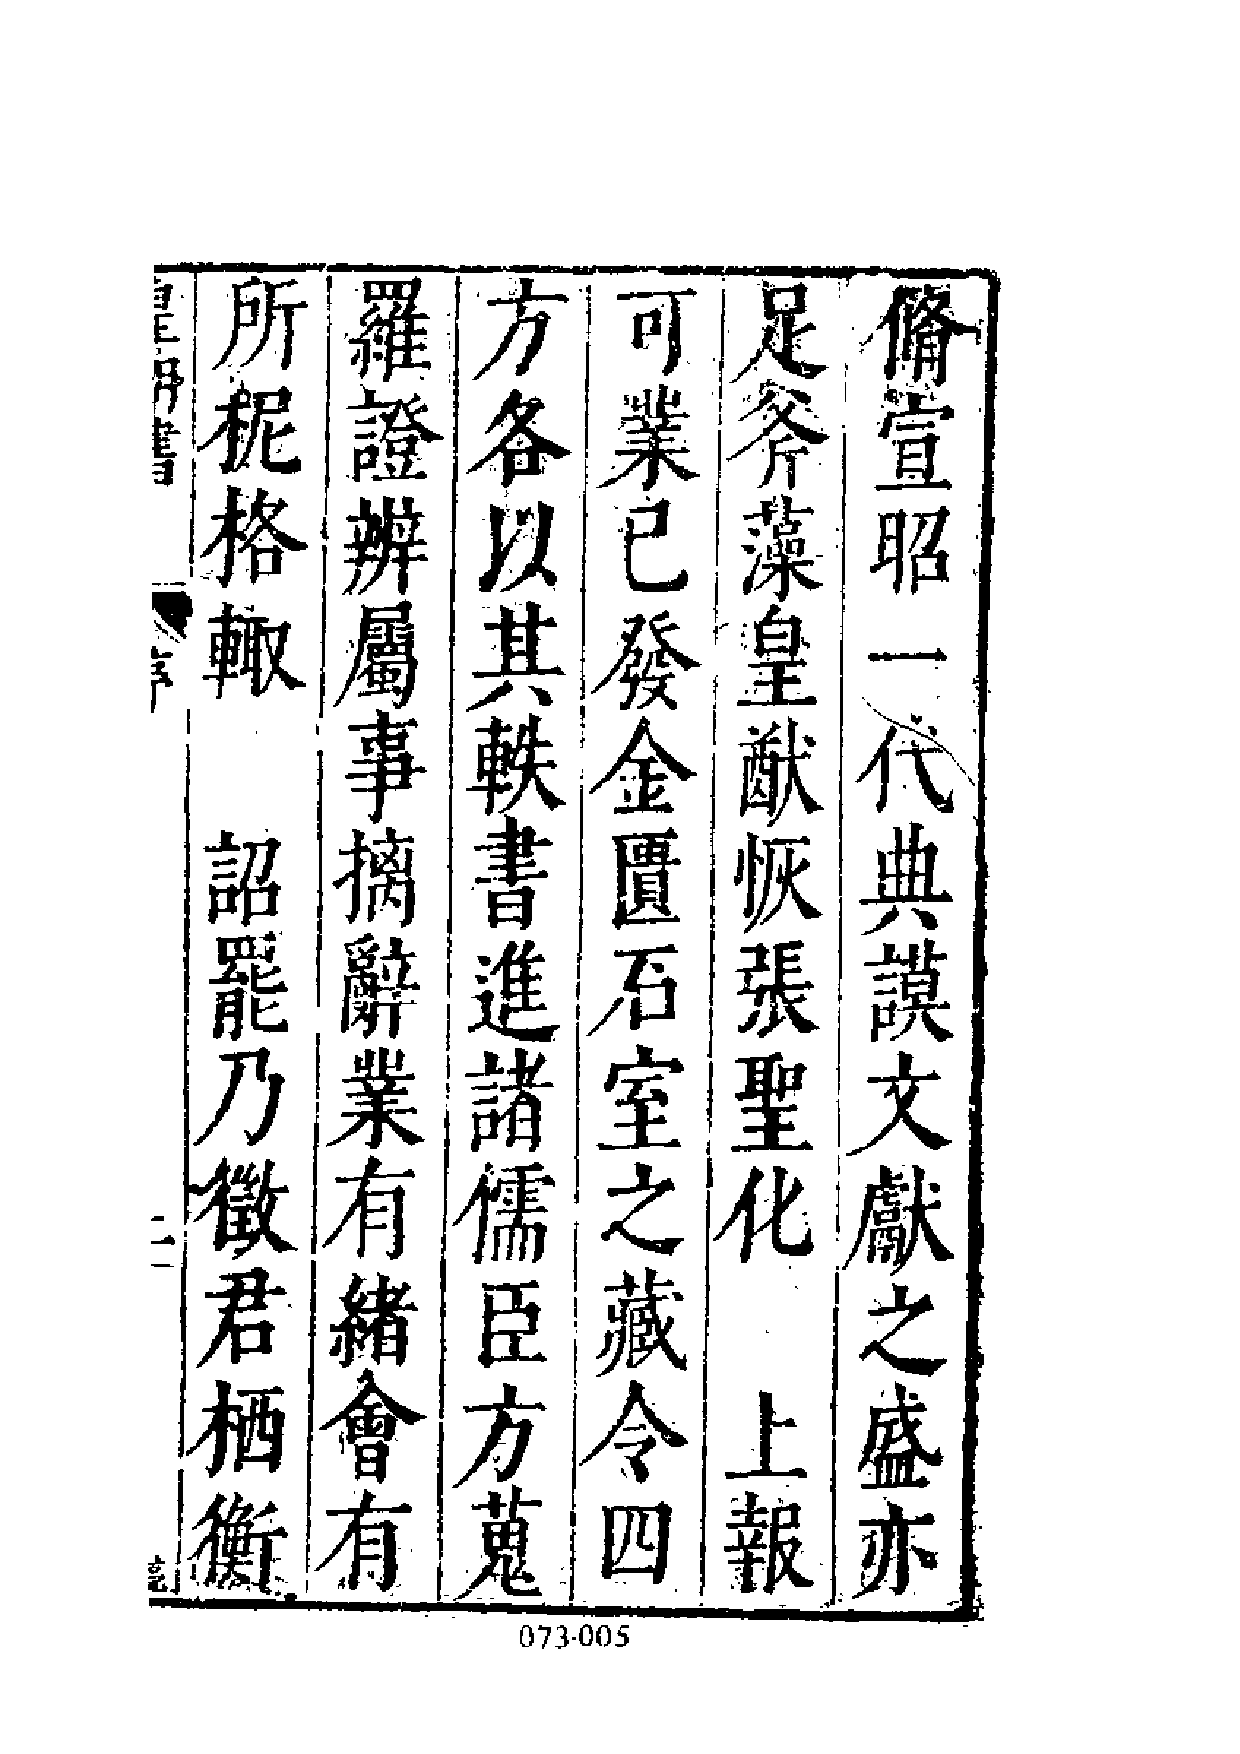 脩宣昭一代典謨文獻之盛亦
足斧藻皇猷恢張聖化　上報
可業已發金匱石室之藏令四
方各以其軼書進諸儒臣方蒐
羅證辨屬事摛辭業有緒會有
所柅格輙　詔罷乃徵君栖衡
皇明書
序
二
073-005